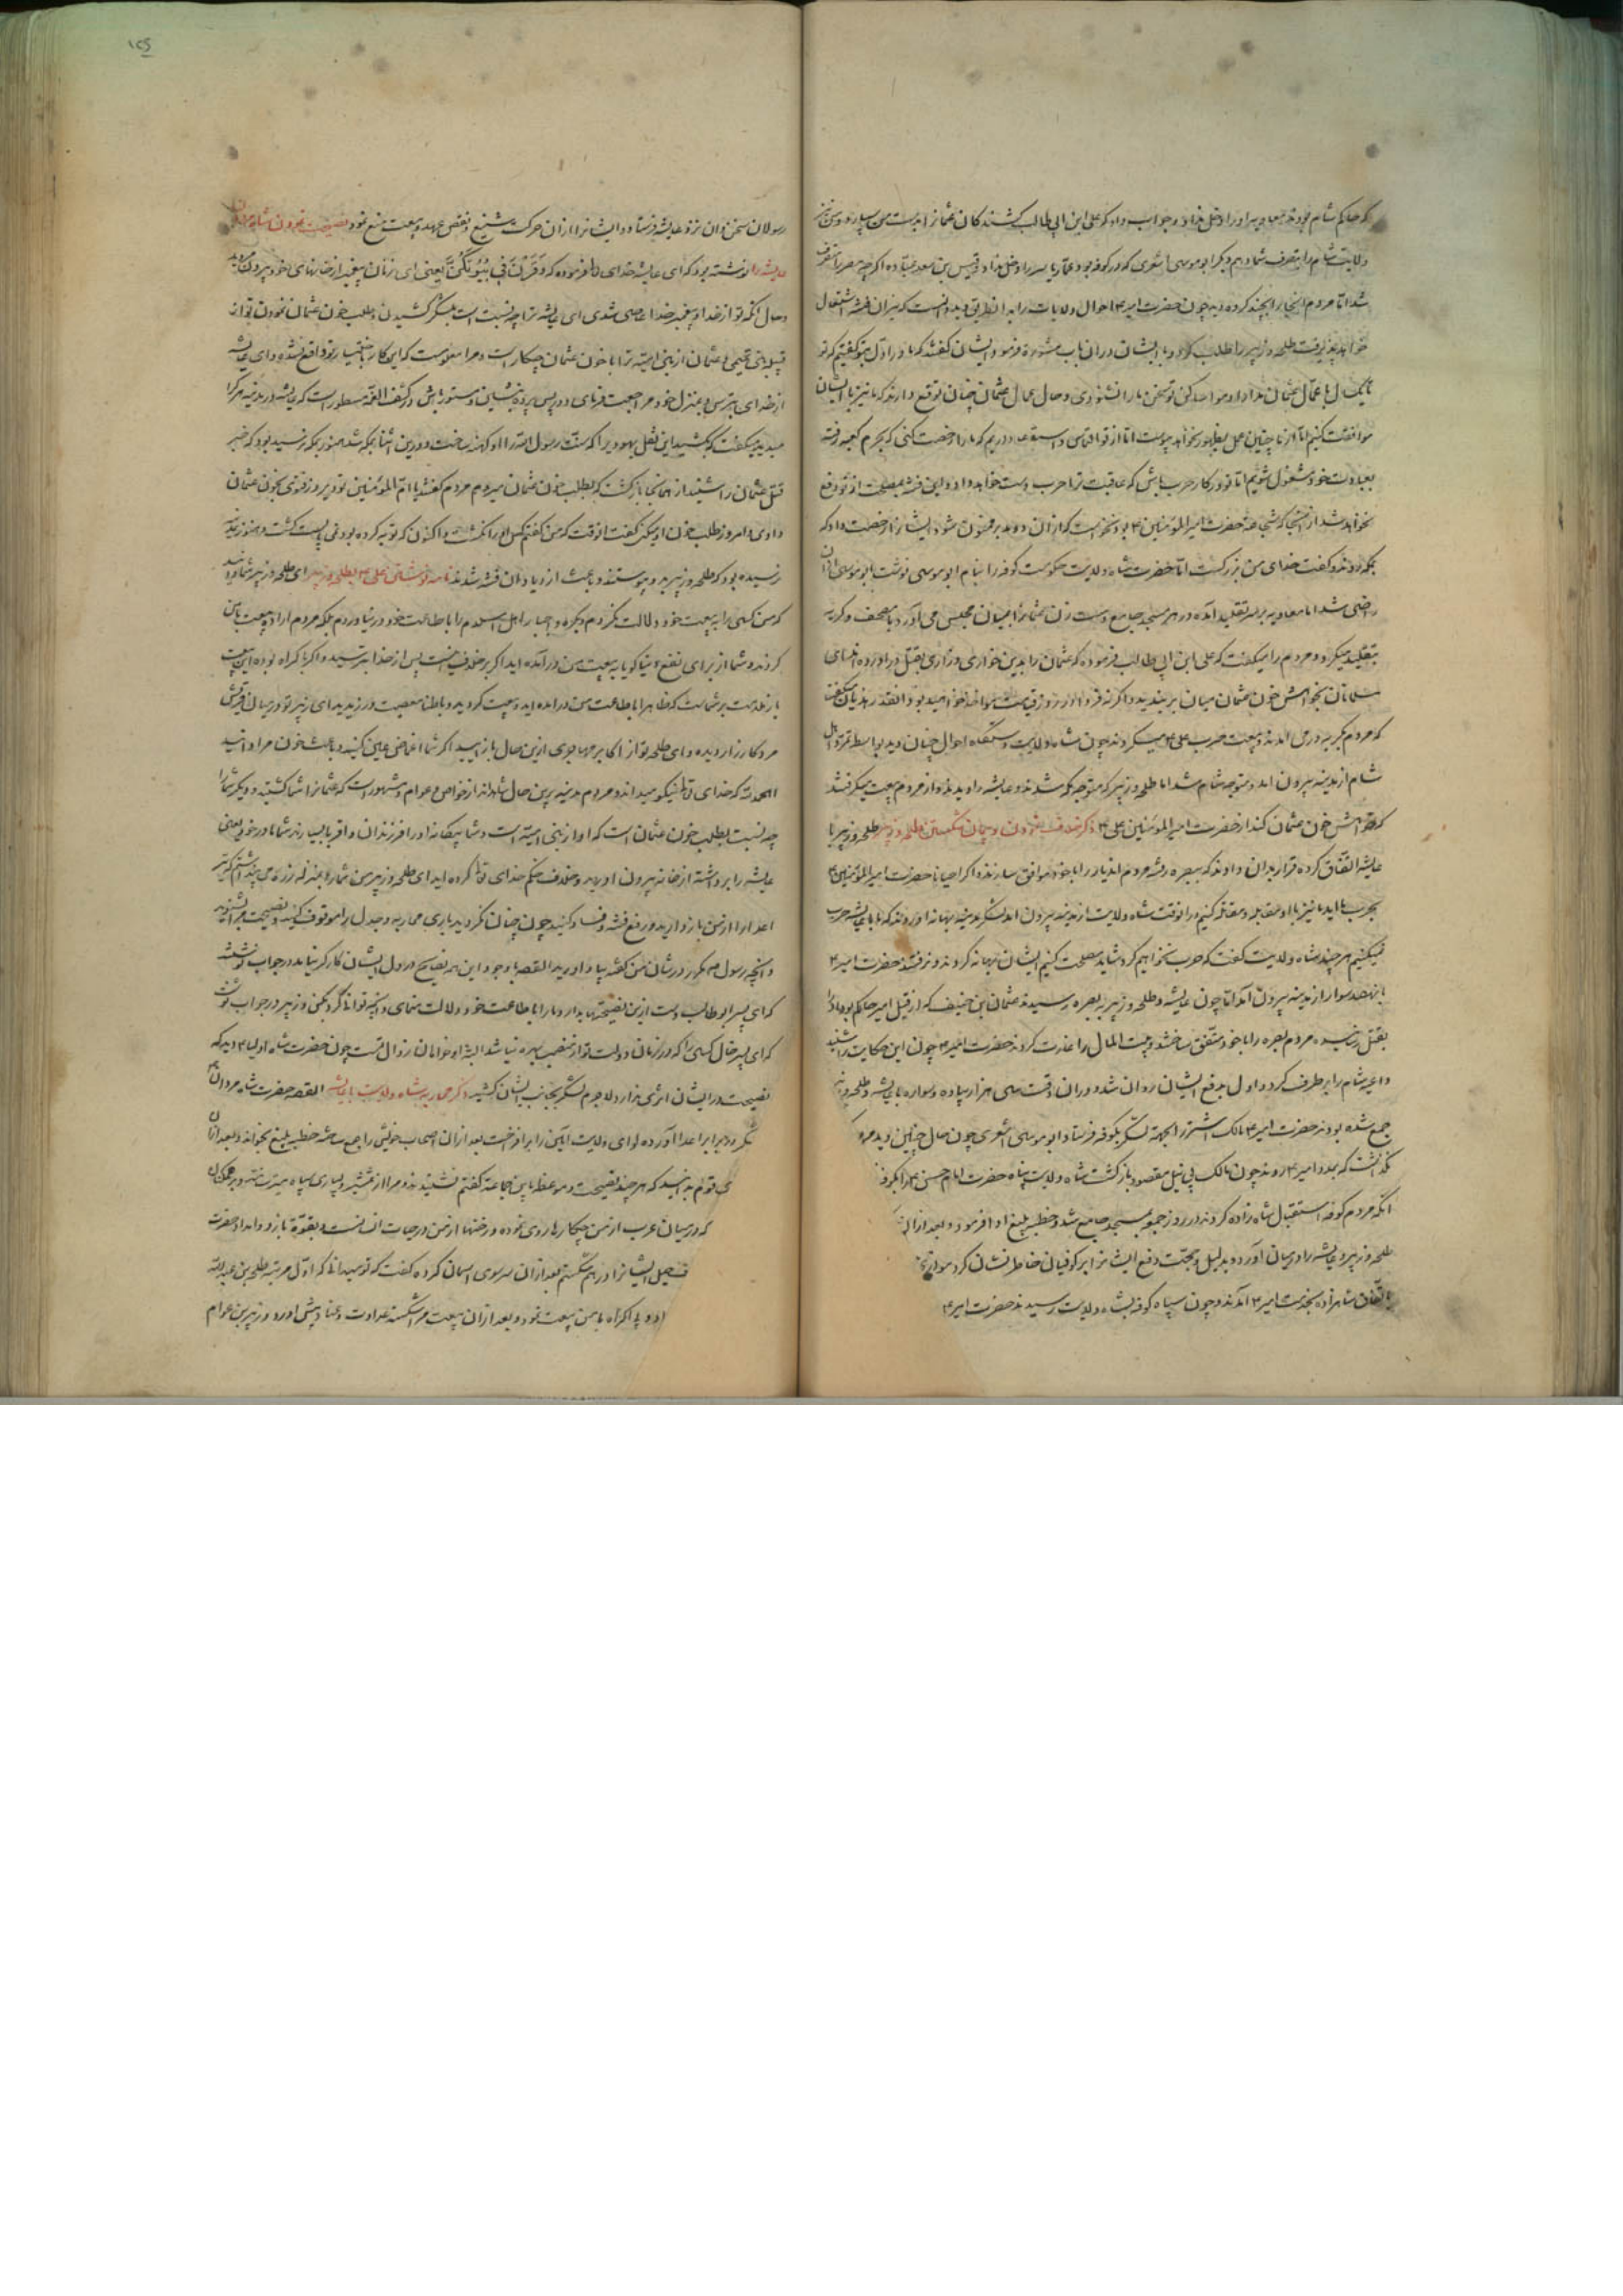 که حاکم شام بود نزد معاویه او را دخل نداد و جواب داد که علی ابن ابی طالب کشندکان عثمان را بدست من سپارد و من نیز
ولایت شام را بتصرف شما دهم و دیگر ابو موسی اشعری که در کوفه بود عمار یاسر را دخل نداد و قیس بن سعد عباده اگرچه مصر را متصرف
شد اما مردم انجا را کرده دید چون حضرت امیر احوال ولایات را بدان طریق دید دانست که نیران فتنه اشتعال
خواهد پذیرفت طلحه و زبیر را طلب کرد و با ایشان دران باب مشورة فرمود ایشان گفتند که ما در اول بتو گفتیم که تو
یکسال با عمال عثمان مدارا و مواسا کن تو سخن ما را نشنودی و حال عمال عثمان چنان توقع دارند که ما نیز با ایشان
موافقت کنیم اما از ما چنین عمل بظهور نخواهد پیوست اما از تو التماس و استدعا داریم که ما را رخصت کنی که بحرم کعبه رفته
بعبادت خود مشغول شویم اما تو در کار حرب باش که عاقبت ترا حرب دست خواهد داد و این فتنه بمصلحت از تو دفع
نخواهد شد از آنجا که شجاعت حضرت امیر المؤمنین بود نخواست که ازان دو بد بر فسون شود ایشان را رخصت داد که
بمکه روند و گفت خدای من بزرکست اما حضرت شاه ولایت حکومت کوفه را بنام ابو موسی نوشت ابو موسی ازان
راضی شد اما معاویه بر سر تقلید آمده در هر مسجد جامع دست زن عثمان را بمیان مجلس می آورد با مصحف و گریه
بتقلید میکرد و مردم را میکفت که علی ابن ابی طالب فرموده که عثمان را بدین خواری و زاری بقتل در آورده اند ای
مسلمانان بخواهش خون عثمان میان بربندید و اگرنه فردا در روز قیامت مواخذ خواهید بود انقدر هذیان میکفت
که مردم بگریه در می آمدند و بیعت حرب علی میکردند چون شاه ولایت دستکاه احوال چنان دید بواسطه تمرد اهل
شام از مدینه بیرون امد و متوجه شام شد اما طلحه و زبیر که متوجه مکه شدند و عایشه را دیدند و از مردم بیعت میکرفتند
که خواهش خون عثمان کنند از حضرت امیر المؤمنین علی ذکر خلاف نمودن و پیمان شکستن طلحه و زبیر طلحه و زبیر با
عایشه اتفاق کرده قرار بدان دادند که ببصره رفته مردم اندیار را با خود موافق سازند و اگر احیانا حضرت امیر المؤمنین
بحرب ما اید ما نیز با او مقابله و مقاتله کنیم در انوقت شاه ولایت از مدینه بیرون امد لشکر مدینه بهانه اوردند که ما با عایشه حرب
نمیکنیم هر چند شاه ولایت گفت که حرب نخواهیم کرد شاید مصلحت کنیم ایشان بهانه کردند و نرفتند حضرت امیر
با نهصد سوار از مدینه بیرون آمد اما چون عایشه و طلحه و زبیر به بصره رسیدند عثمان ابن حنیف که از قبل امیر حاکم بود او را
بقتل رسانیده مردم بصره را با خود متفق ساختند و بیت المال را غارت کردند حضرت امیر چون این حکایت را شنید
داعیه شام را بر طرف کرد و اول بدفع ایشان روان شد و دران وقت سی هزار پیاده و سواره با عایشه و طلحه و زبیر
جمع شده بودند حضرت امیر مالک اشتر را بجهة لشکر بکوفه فرستاد ابو موسی اشعری چون حال چنین دید مردم
نگذاشت که بمدد امیر روند چون مالک بی نیل مقصود بازگشت شاه ولایت پناه حضرت امام حسن را بکوفه
انکه مردم کوفه استقبال شاه زاده کردند در روز جمعه بمسجد جامع شد و خطبه بلیغ ادا فرمود و بعد ازان
طلحه و زبیر و عایشه را در میان آورد و بدلیل و حجت دفع ایشان را بر کوفیان خاطر نشان کرد
باتفاق شاهزاده بخدمت امیر آمدند و چون سپاه کوفه بشاه ولایت رسیدند حضرت امیر
۱۲۵
رسولان سخن دان نزد عایشه فرستاد و ایشان را ازان حرکت شنیع و نقض عهد و بیعت منع نمود نصیحت نمودن شاه مردان
عایشه را نوشته بود که ای عایشه خدای تعالی فرموده که وَقَرْنَ فی بُیُوتِکُنَّ یعنی ای زنان پیغمبر از خانهای خود بیرون میایید
و حال انکه تو از خدا و پیغمبر خدا عاصی شدی ای عایشه ترا چه نسبت است بلشکر کشیدن و طلب خون عثمان نمودن تو از
قبیله بنی تمیمی و عثمان از بنی امیه ترا با خون عثمان چکار است و مرا معلومست که این کار باختیار تو واقع نشده و ای عایشه
از خدای بترس و بمنزل خود مراجعت فرمای و در پس پرده بنشین و مستور باش در کشف الغمه مسطور است که عایشه در مدینه هر کرا
میدید میکفت که بکشید این نعثل یهودی را که سنت رسول الله را او کهنه ساخت و درین اثنا بمکه شد هنوز بمکه نرسیده بود که خبر
قتل عثمان را شنید از همانجا بازگشت که بطلب خون عثمان میروم مردم گفتند یا ام المؤمنین تو دیروز فتوی بخون عثمان
دادی و امروز طلب خون او میکنی گفت انوقت که من گفتم کسی او را نکشت و اکنون که توبه کرده بود و هنوز بمدینه
نرسیده بود که طلحه و زبیر بدو پیوستند و باعث ازدیاد ان فتنه شدند نامه نوشتن علی بطلحه و زبیر ای طلحه و زبیر شما دانید
که من کسی را به بیعت خود دلالت نکردم و بکره و اجبار اهل اسلام را باطاعت خود در نیاوردم بلکه مردم ارادة بیعت با من
کردند و شما از برای نفع دنیا گویا به بیعت من در آمده اید اکر بر خلاف نیست پس از خدا بترسید و اگر با کراه بوده این بیعت
باز ندامت بر شماست که ظاهرا باطاعت من در امده اید و بیعت کردید و باطنا معصیت ورزیدید ای زبیر تو در میان قریش
مرد کارزار دیده و ای طلحه تو از اکابر مهاجری ازین حال باز ایید اگر شما اغماض عین کنید و باعث خون مرا دانید
الحمد لله که خدای تعالی نیکو میداند و مردم مدینه برین حال شاهدند از خواص و عوام و مشهور است که عثمان را شما کشتید و دیگر شما را
چه نسبت بطلب خون عثمان است که او از بنی امیه است و شما بیکانه او را فرزندان و اقربا بسیارند شما مادر خود یعنی
عایشه را برداشته از خانه بیرون اورید و خلاف حکم خدای تعالی کرده اید ای طلحه و زبیر من شما را بمنزله زره می پنداشتم که شر
اعدا را از من باز دارید و رفع فتنه و فساد کنید چون چنان نکردید باری محاربه و جدل را موقوف کنید و نصیحت مرا بشنوید
و انچه رسول مکرر در شان من گفته بیاد اورید القصه با وجود این همه نصایح در دل ایشان کارگر نیامد در جواب نوشتند
که ای پسر ابو طالب دست ازین نصیحتها بدار و ما را باطاعت خود دلالت منمای و انچه توانی کرد بکن و زبیر در جواب نوشت
که ای پسر خال کسی را که در زمان دولت تو از منصب بهره نباشد البته او خواهان زوال تست چون حضرت شاه اولیا دید که
نصیحت در ایشان اثری ندارد لاجرم لشکر بجانب ایشان کشید ذکر محاربه شاه ولایت با عایشه القصه حضرت شاه مردان
لشکر در برابر اعدا آورده لوای ولایت آیین را بر افراخت بعد ازان اصحاب خویش را جمع ساخته خطبه بلیغ بخواند و بعد ازان
ای قوم بدانید که هر چند نصیحت و موعظه باین جماعة گفتم نشنیدند و مرا از شمشیر و بسیاری سپاه میترسانند و بر همکنان
که در میان عرب از من چکارها روی نموده و زخمها از من در حیات و بقوة بازو و امداد حضرت
ایشان را در هم شکستم بعد ازان سر سوی اسمان کرده گفت که تو میدانی که اول مرتبه طلحه بن عبد الله
بی اکراه با من بیعت نمود و بعد ازان بیعت مرا شکسته عداوت و عناد پیش اورد و زبیر بن عوام